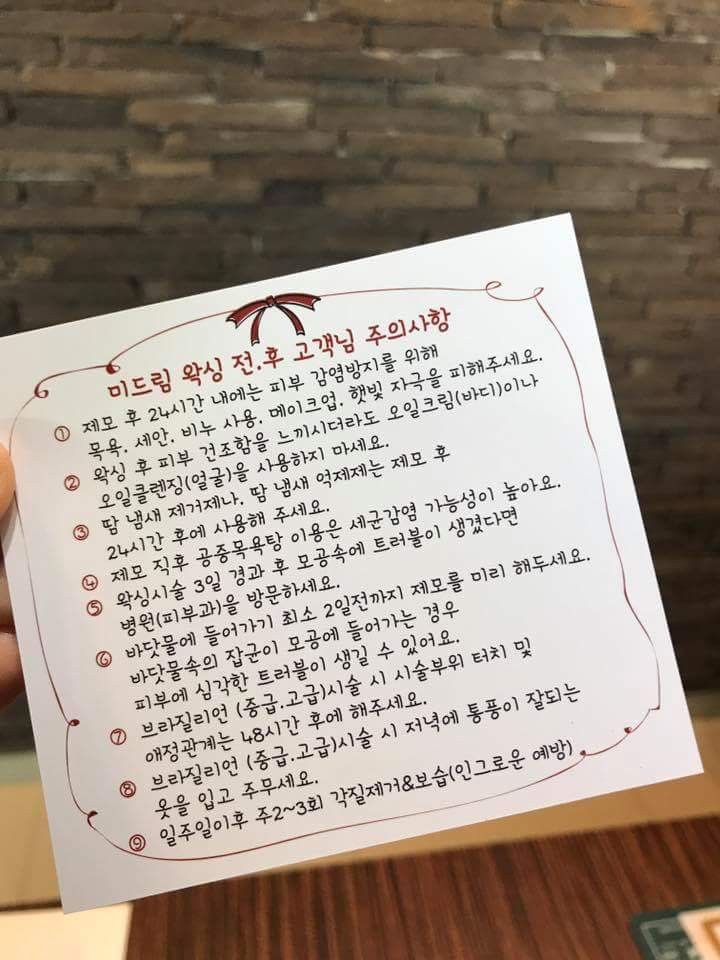 미드림 왁싱 전.후 고객님 주의사항
① 제모 후 24시간 내에는 피부 감염방지를 위해
목욕. 세안. 비누 사용. 메이크업. 햇빛 자극을 피해주세요.
② 왁싱 후 피부 건조함을 느끼시더라도 오일크림(바디)이나
오일클렌징(얼굴)을 사용하지 마세요.
③ 땀 냄새 제거제나, 땀 냄새 억제제는 제모 후
24시간 후에 사용해 주세요.
④ 제모 직후 공중목욕탕 이용은 세균감염 가능성이 높아요.
⑤ 왁싱시술 3일 경과 후 모공속에 트러블이 생겼다면
병원(피부과)을 방문하세요.
⑥ 바닷물에 들어가기 최소 2일전까지 제모를 미리 해두세요.
바닷물속의 잡균이 모공에 들어가는 경우
피부에 심각한 트러블이 생길 수 있어요.
⑦ 브라질리언 (중급.고급)시술 시 시술부위 터치 및
애정관계는 48시간 후에 해주세요.
⑧ 브라질리언 (중급.고급)시술 시 저녁에 통풍이 잘되는
옷을 입고 주무세요.
⑨ 일주일이후 주2~3회 각질제거&보습(인그로운 예방)